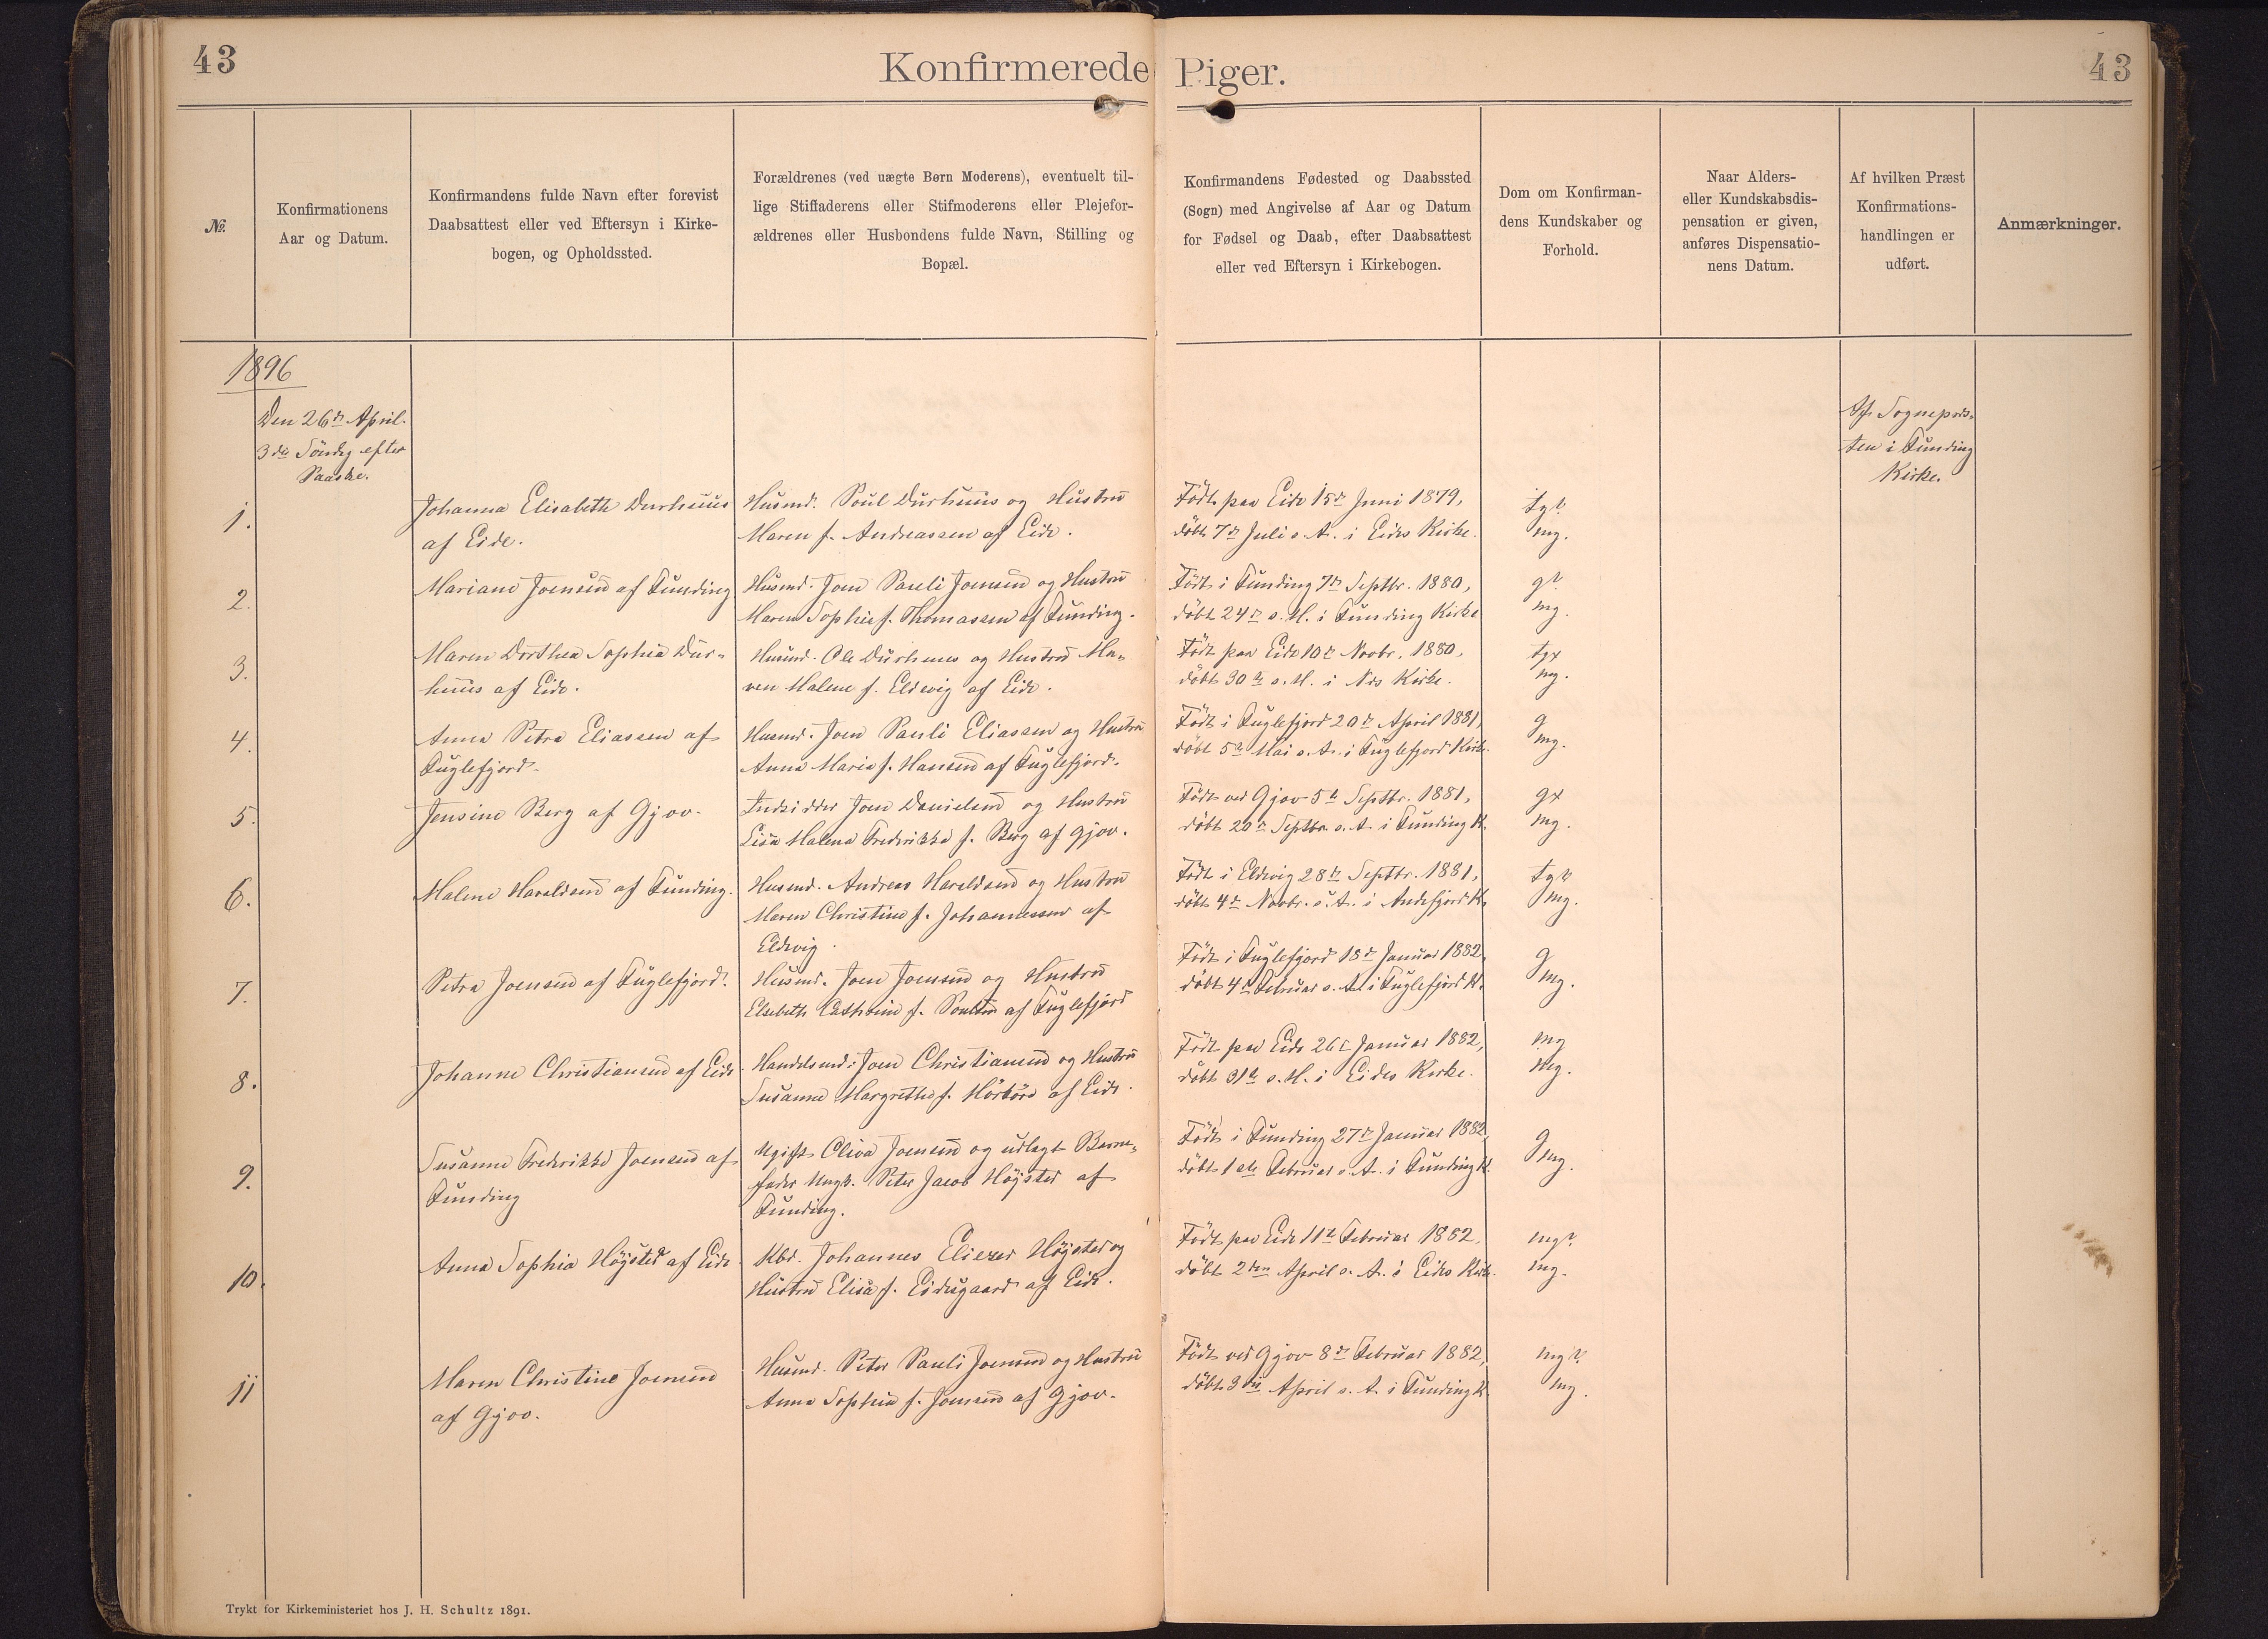 43
Konfirmerede Piger.
43
№.
Konfirmationens
Aar og Datum.
Konfirmandens fulde Navn efter forevist
Daabsattest eller ved Eftersyn i Kirke-
bogen, og Opholdssted.
Forældrenes (ved uægte Børn Moderens), eventuelt til-
lige Stiffaderens eller Stifmoderens eller Plejefor-
ældrenes eller Husbondens fulde Navn, Stilling og
Bopæl.
Konfirmandens Fødested og Daabssted
(Sogn) med Angivelse af Aar og Datum
for Fødsel og Daab, efter Daabsattest
eller ved Eftersyn i Kirkebogen.
Dom om Konfirman-
dens Kundskaber og
Forhold.
Naar Alders-
eller Kundskabsdis-
pensation er given,
anføres Dispensatio-
nens Datum.
Af hvilken Præst
Konfirmations-
handlingen er
udført.
Anmærkninger.
1896
Den 26de April.
3die Söndag efter
Paaske.
Af Sognepræs-
ten i Funding
Kirke.
1.
Johanna Elisabeth Durhuus
af Eide.
Husmd. Poul Durhuus og Hustru
Maren f. Andreassen af Eide.
Födt paa Eide 15de Juni 1879,
döbt 7de Juli s. A. i Eides Kirke.
tg?
mg.
2.
Mariane Joensen af Funding
Husmd. Joen Pauli Joensen og Hustru
Maren Sophie f. Thomassen af Funding.
Födt i Funding 7de Septbr. 1880,
döbt 24de s. M. i Funding Kirke
g?
mg.
3.
Maren Dorthea Sophia Dur-
huus af Eide.
Husmd. Ole Durhuus og Hustru Ma-
ren Malene f. Eldevig af Eide.
Födt paa Eide 10de Novbr. 1880,
döbt 30te s. M. i Kirke.
tgx
mg.
4.
Anna Petra Eliassen af
Fuglefjord.
Husmd. Joen Pauli Eliassen og Hustru
Anna Maria f. Hansen af Fuglefjord.
Födt i Fuglefjord 20de April 1881,
döbt 5te Mai s. A. i Fuglefjord Kirke.
g
mg.
5.
Jensine Berg af Gjov.
Indsidder Joen Danielsen og Hustru
Lisa Malena Frederikke f. Berg af Gjov.
Födt ved Gjov 5te Septbr. 1881,
döbt 20de Septbr. s. A. i Funding K.
gx
mg.
6.
Malene Haraldsen af Funding.
Husmd. Andreas Haraldsen og Hustru
Maren Christine f. Johannessen af
Eldevig.
Födt i Eldevig 28de Septbr. 1881,
döbt 4de Novbr. s. A. i Andefjord K.
tg?
mg.
7.
Petra Joensen af Fuglefjord.
Husmd. Joen Joensen og Hustru
Elsebeth Cathrine f. Poulsen af Fuglefjord
Födt i Fuglefjord 18de Januar 1882,
döbt 4de Februar s. A. i Fuglefjord K.
g
mg.
8.
Johanne Christiansen af Eide
Handelsmd. Joen Christiansen og Hustru
Susanne Margrethe f. Mörköre af Eide.
Födt paa Eide 26de Januar 1882,
döbt 31te s. M. i Eides Kirke.
mg
mg.
9.
Susanne Frederikke Joensen af
Funding
Ugift Oliva Joensen og udlagt Barne-
fader Ungk. Peter Jacob Höjsted af
Funding.
Födt i Funding 27de Januar 1882,
döbt 1ste Februar s. A. i Funding K.
g
mg.
10.
Anna Sophia Höjsted af Eide
Kbd. Johannes Eliezer Höjsted og
Hustru Elisa f. Eidesgaard af Eide.
Födt paa Eide 11te Februar 1882,
döbt 2den April s. A. i Eides Kirke.
mg?
mg.
11
Maren Christine Joensen
af Gjov.
Husmd. Peter Pauli Joensen og Hustru
Anna Sophia f. Joensen af Gjov.
Födt ved Gjov 8de Februar 1882,
döbt 3die April s. A. i Funding K
mg?
mg.
Trykt for Kirkeministeriet hos J. H. Schultz 1891.